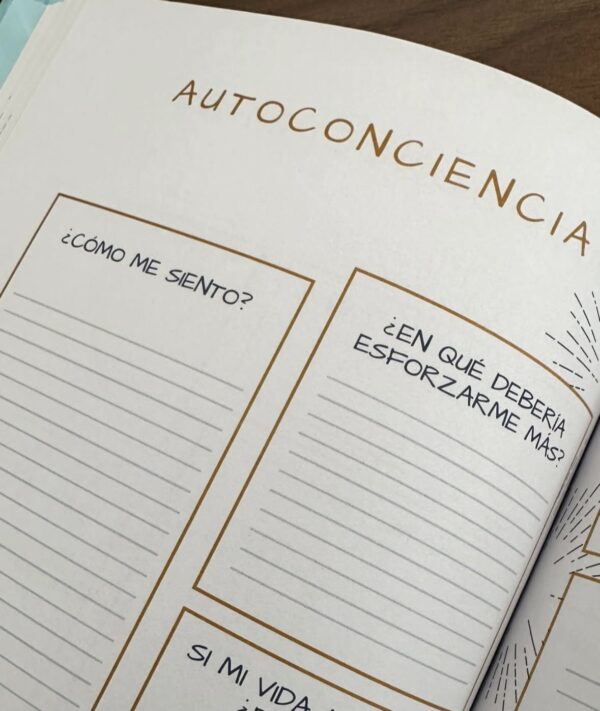 AUTOCONCIENCIA
¿CÓMO ME SIENTO?
¿EN QUÉ DEBERÍA
ESFORZARME MÁS?
SI MI VIDA